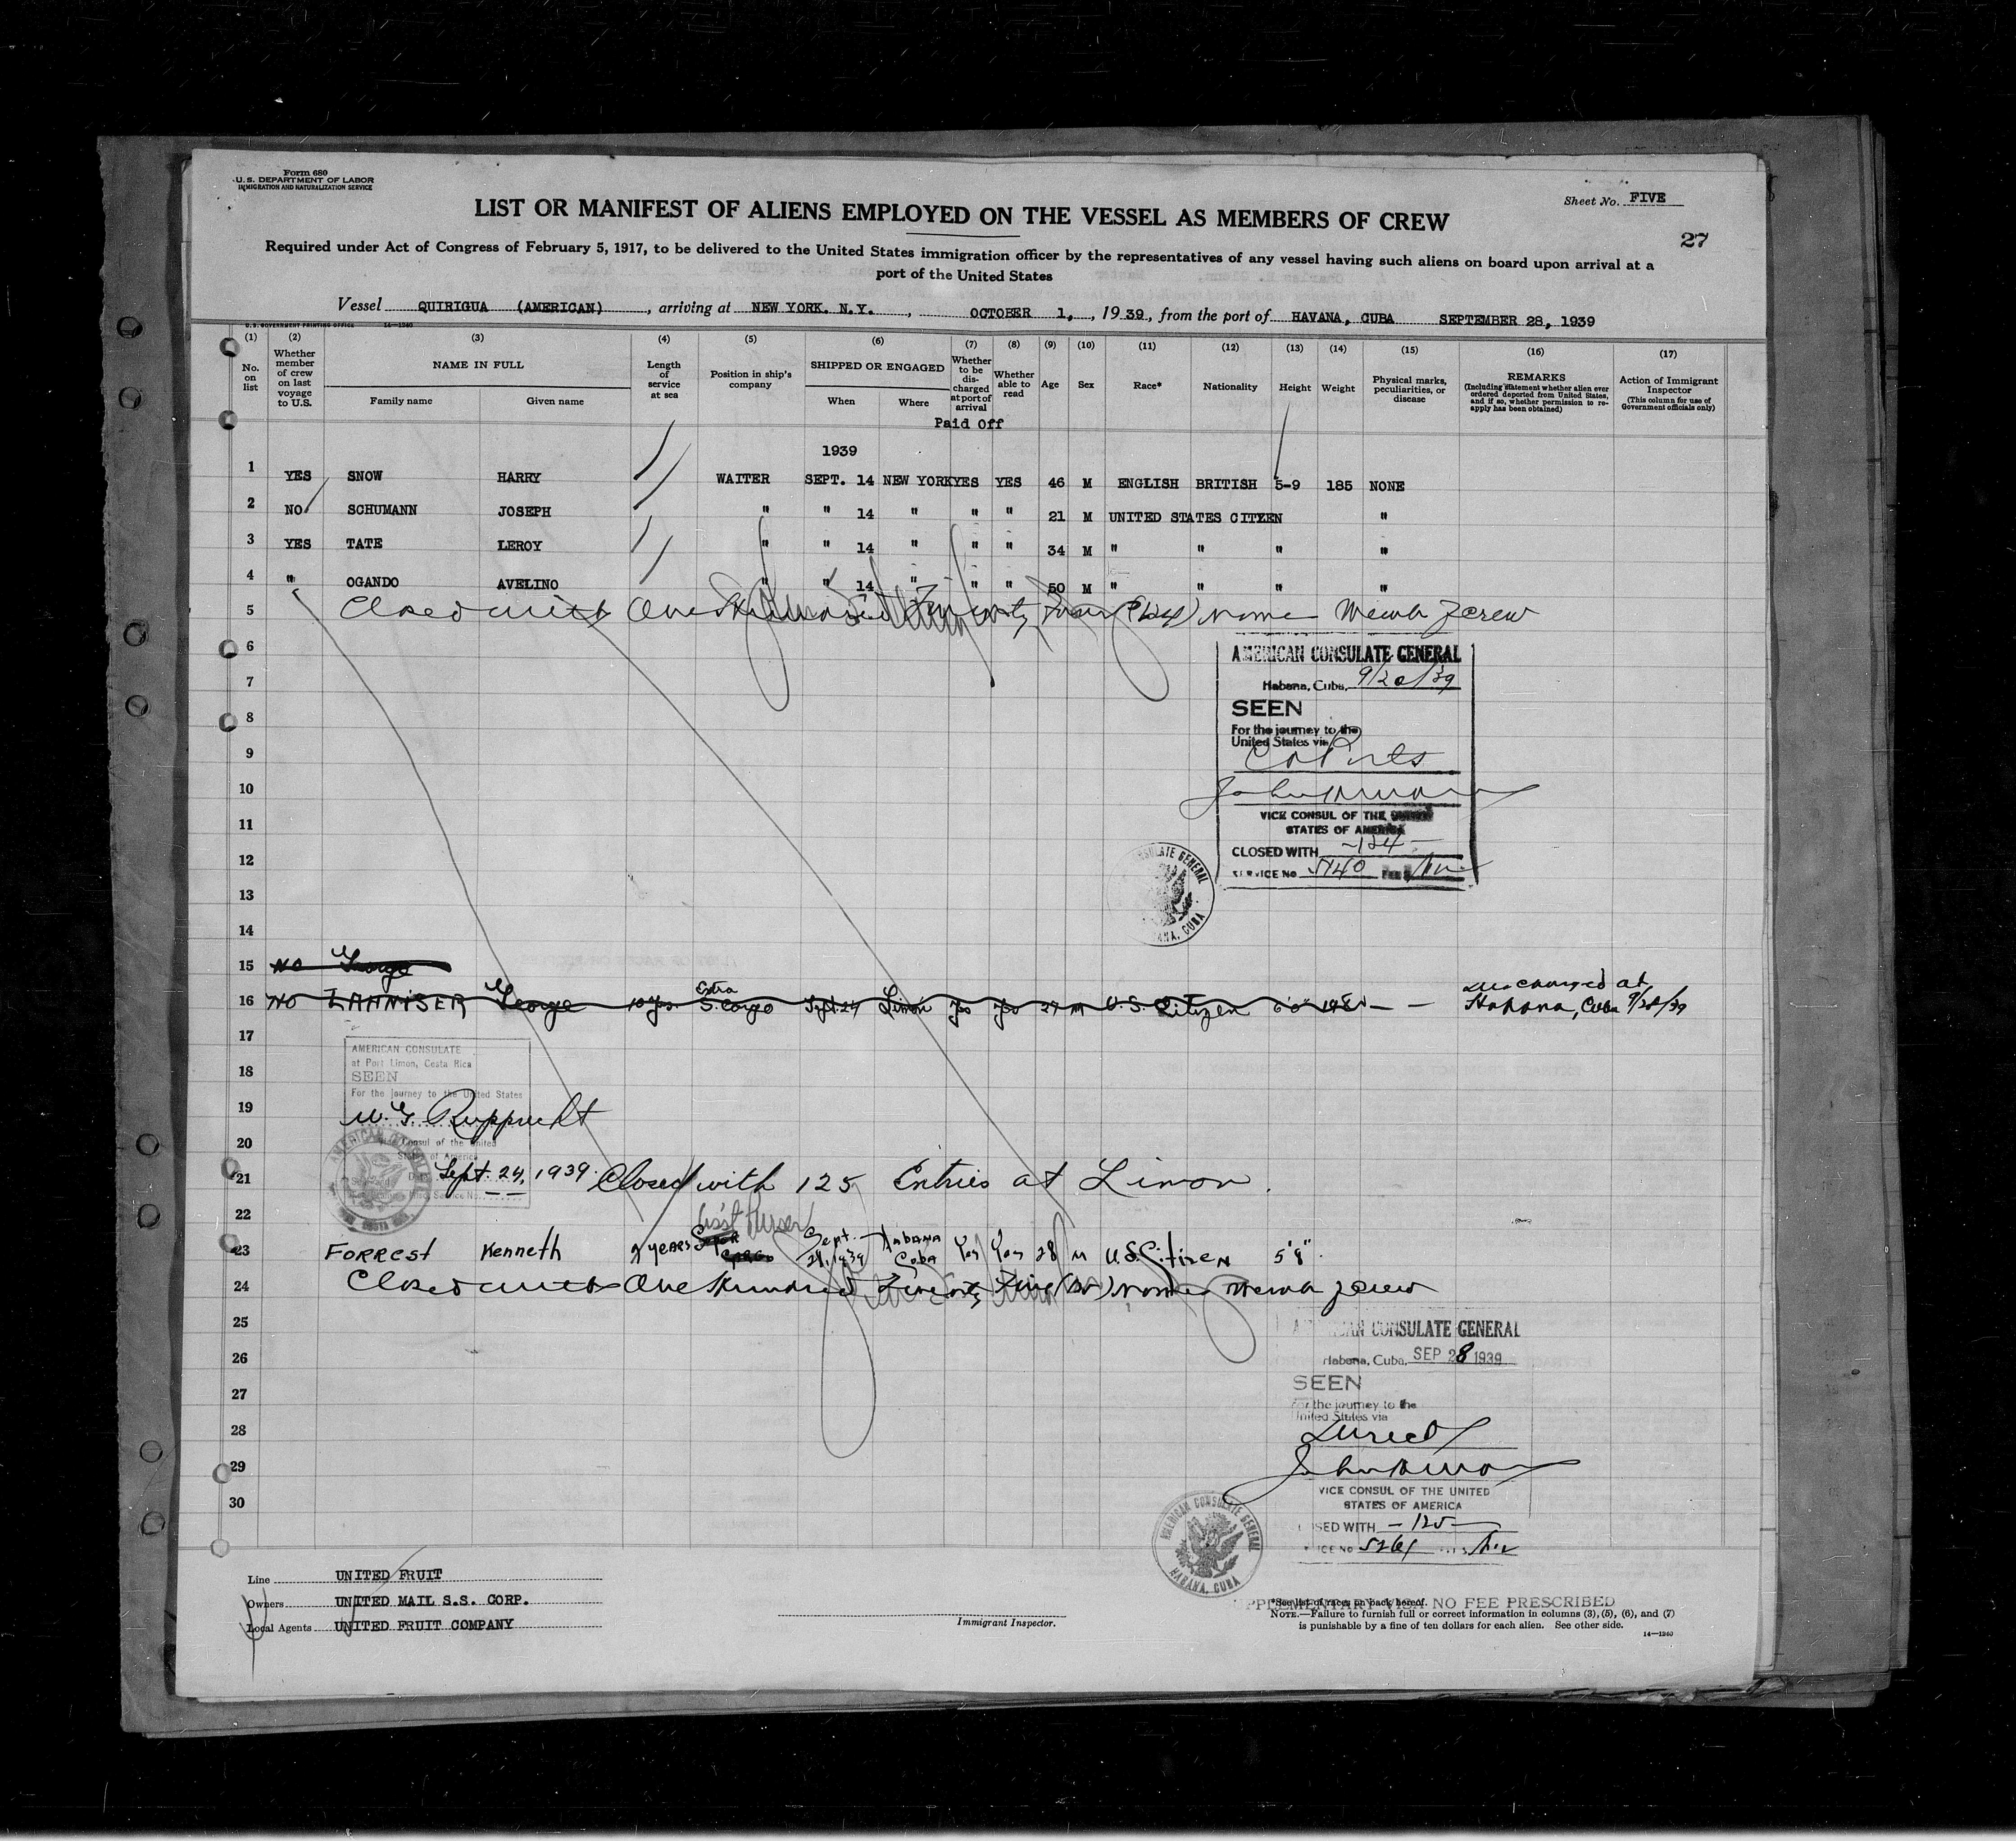 Form 680
U.S. DEPARTMENT OF LABOR
IMMIGRATION AND NATURALIZATION SERVICE
Sheet No. FIVE
LIST OR MANIFEST OF ALIENS EMPLOYED ON THE VESSEL AS MEMBERS OF CREW
27
Required under Act of Congress of February 5, 1917, to be delivered to the United States immigration officer by the representatives of any vessel having such aliens on board upon arrival at a
port of the United States
Vessel QUIRIGUA (AMERICAN), arriving at NEW YORK. N.Y., OCTOBER 1, , 1939, from the port of HAVANA, CUBA SEPTEMBER 28, 1939
U.S. GOVERNMENT PRINTING OFFICE 14—1240
(1) (2) (3) (4) (5) (6) (7) (8) (9) (10) (11) (12) (13) (14) (15) (16) (17)
No. on list
Whether member of crew on last voyage to U.S.
NAME IN FULL
Family name
Given name
Length of service at sea
Position in ship's company
SHIPPED OR ENGAGED
When
Where
Whether to be discharged at port of arrival
Whether able to read
Age
Sex
Race*
Nationality
Height
Weight
Physical marks, peculiarities, or disease
REMARKS
(Including statement whether alien ever ordered deported from United States, and if so, whether permission to reapply has been obtained)
Action of Immigrant Inspector
(This column for use of Government officials only)
Paid Off
1939
1 YES SNOW HARRY WAITER SEPT. 14 NEW YORK YES YES 46 M ENGLISH BRITISH 5-9 185 NONE
2 NO SCHUMANN JOSEPH " " 14 " " " 21 M UNITED STATES CITZEN "
3 YES TATE LEROY " " 14 " " " 34 M " " " "
4 " OGANDO AVELINO " " 14 " " " 50 M " " " "
5 Closed with One Hundred Twenty Four (124) Names Memb of crew
6
AMERICAN CONSULATE GENERAL
7
Habana, Cuba, 9/20/39
8
SEEN
9
For the journey to the
United States via
10
11
VICE CONSUL OF THE UNITED
STATES OF AMERICA
12
CLOSED WITH -124-
SERVICE No. 5140
13
14
15 NO George
16 NO LAHNISER George 10 yrs. Extra S. Cargo Sept 24 Limon Yes Yes 27 M U.S. Citizen 6'0" — — Discharged at
Habana, Cuba 9/28/39
17
AMERICAN CONSULATE
at Port Limon, Costa Rica
18
SEEN
For the journey to the United States
19
W. G. Rupprecht
20
Vice Consul of the United
States of America
21 Sept. 24, 1939. Closed with 125 Entries at Limon.
22
Ass't Purser
23 FORREST Kenneth 2 YEARS Sept. 28, 1939 HABANA Cuba Yes Yes 28 M U.S. Citizen 5'8".
24 Closed with One Hundred Twenty Five (125) Names Memb of crew
25
AMERICAN CONSULATE GENERAL
26
Habana, Cuba, SEP 28 1939
27
SEEN
For the journey to the
United States via
28
Direct
29
VICE CONSUL OF THE UNITED
STATES OF AMERICA
30
CLOSED WITH -125-
AMERICAN CONSULATE GENERAL
HABANA, CUBA
Line UNITED FRUIT
Owners UNITED MAIL S.S. CORP.
Local Agents UNITED FRUIT COMPANY
Immigrant Inspector.
SUPPLEMENTARY VISA NO FEE PRESCRIBED
*See list of races on back hereof.
NOTE.—Failure to furnish full or correct information in columns (3), (5), (6), and (7)
is punishable by a fine of ten dollars for each alien. See other side.
14—1240